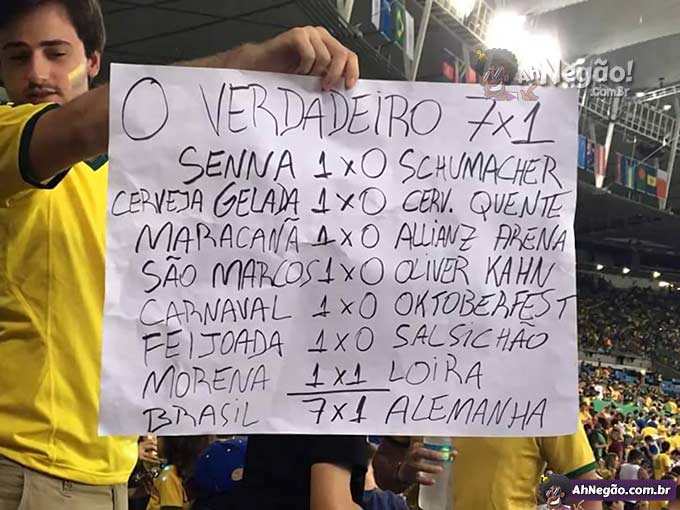 AhNegão!
.com.br
O VERDADEIRO 7x1
SENNA 1x0 SCHUMACHER
CERVEJA GELADA 1x0 CERV. QUENTE
MARACANÃ 1x0 ALLIANZ ARENA
SÃO MARCOS 1x0 OLIVER KAHN
CARNAVAL 1x0 OKTOBERFEST
FEIJOADA 1x0 SALSICHÃO
MORENA 1x1 LOIRA
BRASIL 7x1 ALEMANHA
AhNegão.com.br